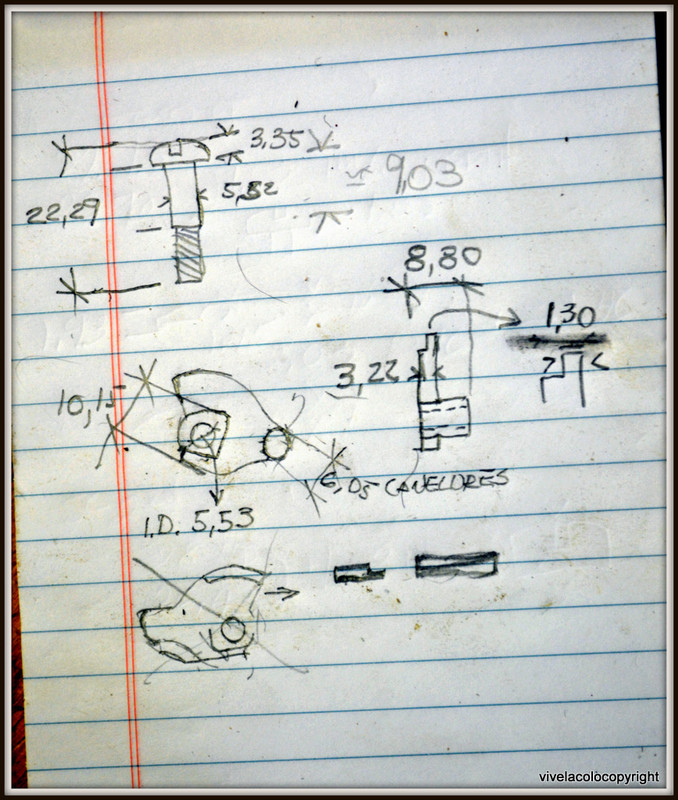 3,35
5,52
22,29
9,03
8,80
1,30
3,22
10,15
6,05 CANELURES
I.D. 5,53
vivelacolocopyright